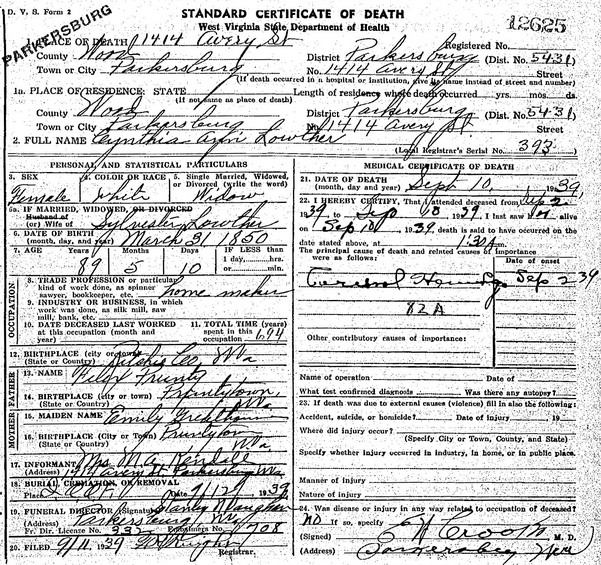 D. V. S. Form 2
STANDARD CERTIFICATE OF DEATH
12625
PARKERSBURG
West Virginia State Department of Health
1. PLACE OF DEATH 1414 Avery St
Registered No.
County Wood
District Parkersburg (Dist. No. 5431)
Town or City Parkersburg
No. 1414 Avery St Street
(If death occurred in a hospital or institution, give its name instead of street and number)
1a. PLACE OF RESIDENCE: STATE
Length of residence where death occurred yrs. mos. ds.
(If not same as place of death)
County Wood
District Parkersburg (Dist. No. 5431)
Town or City Parkersburg
No. 1414 Avery St. Street
2. FULL NAME Cynthia Ann Lowther
(Local Registrar's Serial No. 393)
PERSONAL AND STATISTICAL PARTICULARS
3. SEX Female
4. COLOR OR RACE White
5. Single, Married, Widowed, or Divorced (write the word) Widow
5a. IF MARRIED, WIDOWED, OR DIVORCED
Husband of
(or) Wife of Sylvester Lowther
6. DATE OF BIRTH (month, day, and year) March 31 1850
7. AGE 89 5 10
IF LESS than 1 day, hrs. or min.
OCCUPATION
8. TRADE PROFESSION or particular kind of work done, as spinner, sawyer, bookkeeper, etc. home maker
9. INDUSTRY OR BUSINESS, in which work was done, as silk mill, saw mill, bank, etc.
10. DATE DECEASED LAST WORKED at this occupation (month and year)
11. TOTAL TIME (years) spent in this occupation 69 y
12. BIRTHPLACE (city or town) (State or Country) Ritchie Co, W Va
FATHER
13. NAME
14. BIRTHPLACE (city or town) (State or Country) Pruntytown, W Va
MOTHER
15. MAIDEN NAME Emily
16. BIRTHPLACE (City or Town) (State or Country) Pruntytown W Va
17. INFORMANT Mrs. M A Rendall
(Address) 1414 Avery St. Parkersburg W Va
18. BURIAL, CREMATION, OR REMOVAL
Place I.O.O.F. Date 9/12 1939
19. FUNERAL DIRECTOR (Signature) Stanley N Vaughan
(Address) Parkersburg W Va
Fr. Dir. License No. 332 Embalmers No. 708
20. FILED 9/11 1939
Registrar.
MEDICAL CERTIFICATE OF DEATH
21. DATE OF DEATH (month, day, and year) Sept 10, 1939
22. I HEREBY CERTIFY, That I attended deceased from Sep 2
1939 to Sep 10 1939. I last saw her alive
on Sep 10 1939, death is said to have occurred on the
date stated above, at 1:30 m.
The principal cause of death and related causes of importance were as follows:
Date of onset
Cerebral Sep 2 39
82A
Other contributory causes of importance:
Name of operation Date of
What test confirmed diagnosis Was there any autopsy?
23. If death was due to external causes (violence) fill in also the following:
Accident, suicide, or homicide? Date of injury 19
Where did injury occur?
(Specify City or Town, County, and State)
Specify whether injury occurred in industry, in home, or in public place.
Manner of injury
Nature of injury
24. Was disease or injury in any way related to occupation of deceased?
No If so, specify
(Signed) M. D.
(Address) Parkersburg W Va